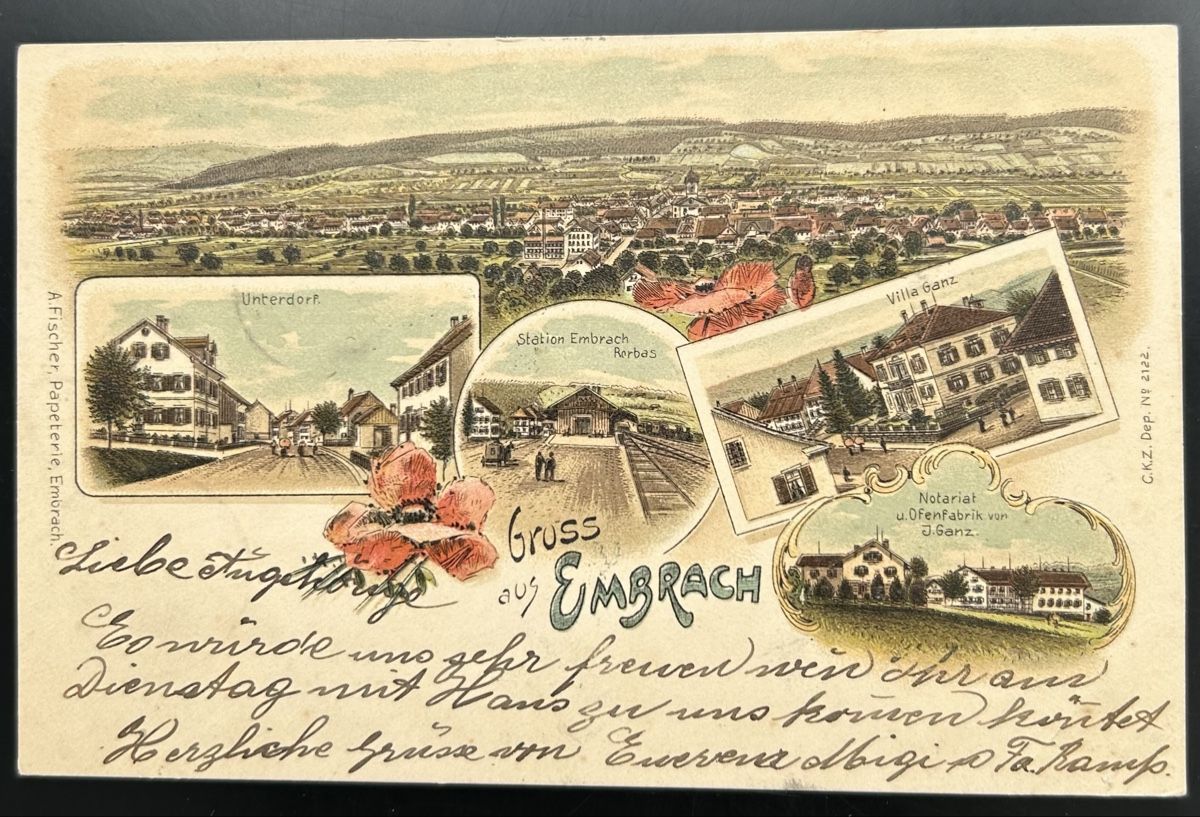 Unterdorf.
Station Embrach
Rorbas
Villa Ganz
Notariat
u. Ofenfabrik von
J. Ganz.
A. Fischer, Papeterie, Embrach.
C.K.Z. Dep. No 2122.
Gruss
aus EMBRACH
Liebe Angehörige
Es würde uns sehr freuen wen ihr am
Dienstag mit Hans zu uns komen köntet
Herzliche Grüsse von Euerem Migi